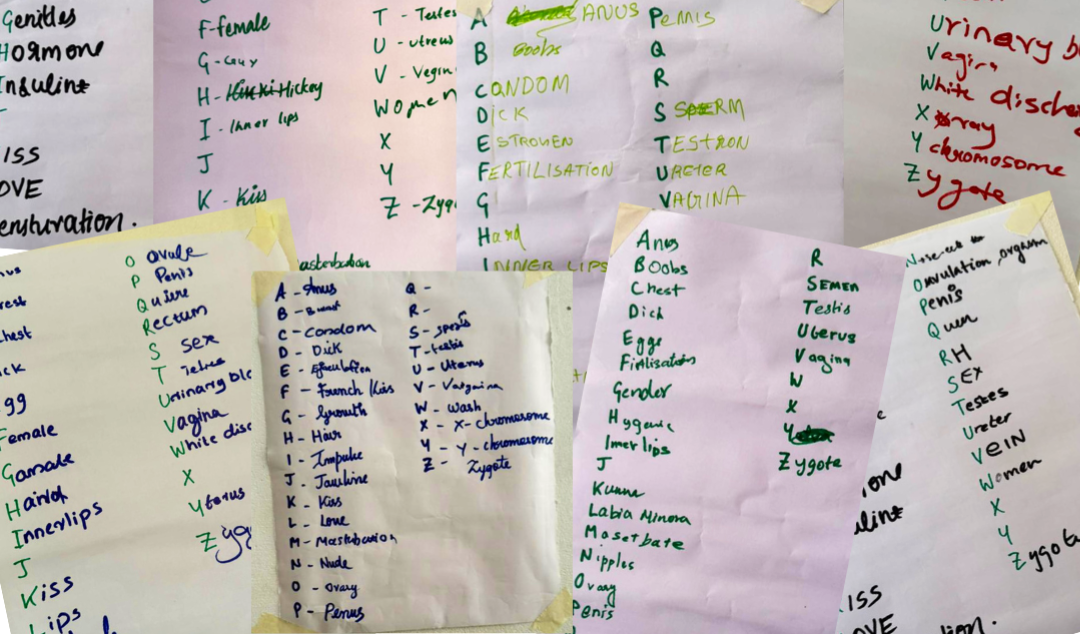 Genitles
Hormone
Insuline
ISS
OVE
F-female
G-
H- Hickey
I - Inner lips
J
K - Kiss
T - Testes
U - utreus
V - Vegin
Women
X
Y
Z - Zyg
A ANUS
B Boobs
CONDOM
DICK
ESTROUEN
FERTILISATION
G
Hard
INNER LIPS
PENNIS
Q
R
S SPERM
TESTRON
URETER
VAGINA
Urinary b
Vagin
White discha
X xray
Y chromosome
Zygote
hest
ck
gg
Female
Gamate
Innerlips
J
Kiss
Lips
O ovule
P Penis
Rectum
S sex
T
Urinary bl
Vagina
White disc
X
Yterus
Zyg
asterbation
A - Anus
B - Breast
C - Condom
D - Dick
E -
F - French Kiss
G - Growth
H - Hair
I - Impulse
J - Jawline
K - Kiss
L - Love
M - Masterbation
N - Nude
O - Ovary
P - Penus
Q -
R -
S -
T - testis
U - Uterus
V -
W - Wash
X - X-chromosome
Y - Y-chromosome
Z - Zygote
Anus
Boobs
Chest
Dich
Eggs
Gender
Hygenic
Imer lips
J
Labia Minora
Masetbate
Nipples
Ovary
Penis
R
SEMEN
Testis
Uterus
Vagina
W
X
Y
Zygote
Ouvulation, orgasm
Penis
Quen
RH
SEX
Testes
Ureter
VEIN
Women
X
Y
Zygota
one
uline
ISS
OVE